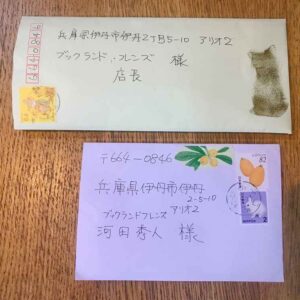 兵庫県伊丹市伊丹2丁目5-10 アリオ2
ブックランドフレンズ 様
店長
〒664-0846
兵庫県伊丹市伊丹
2-5-10
ブックランドフレンズ アリオ2
河田秀人 様
82
NIPPON
2